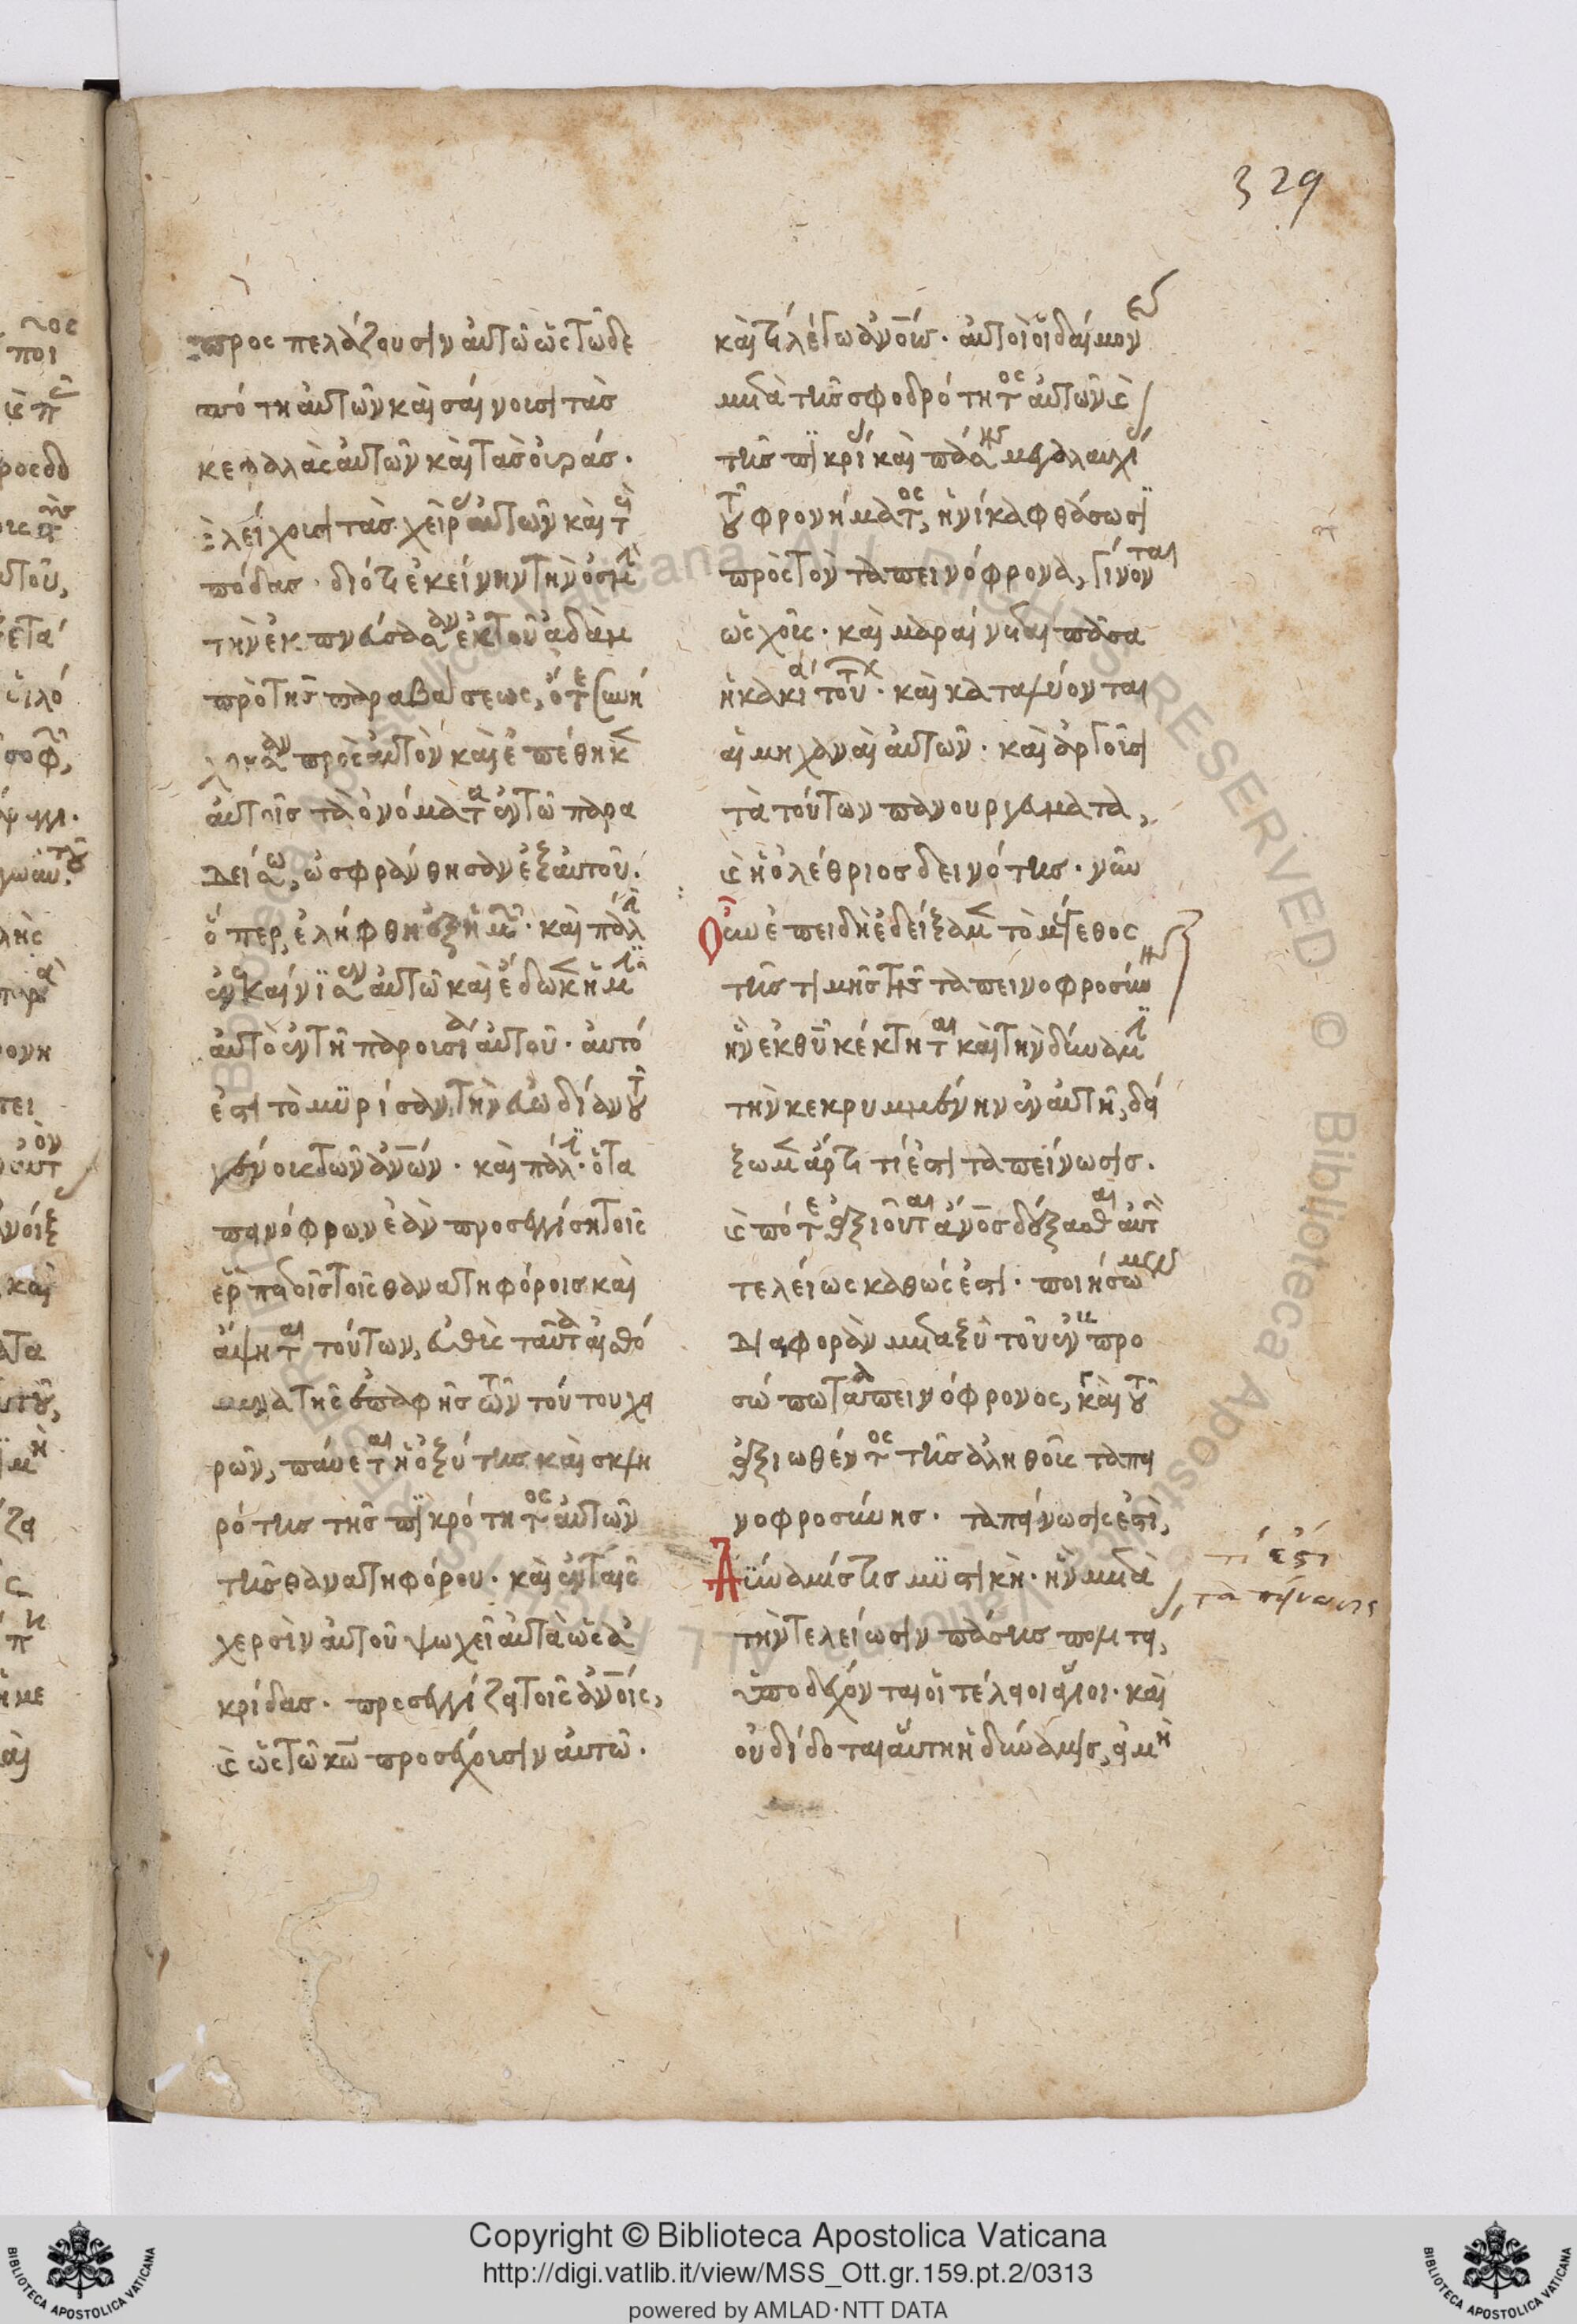 329
προσπελάζουσιν αὐτῶ ὡς τῶ δε
σπότη αὐτῶν καὶ σαίνουσι τὰς
κεφαλὰς αὐτῶν καὶ τὰς οὐρὰς.
λείχουσι τὰς χεῖρας αὐτῶν καὶ τοὺς
πόδας. διότι ἐκείνην τὴν ὀσμὴν
τὴν ἐκπνεύσασαν ἐκ τοῦ ἀδὰμ
πρὸ τῆς παραβάσεως, ὅτε συνή
χθησαν πρὸς αὐτὸν καὶ ἐπέθηκεν
αὐτοῖς τὰ ὀνόματα ἐν τῶ παρα
δείσω, ὠσφράνθησαν ἐξ αὐτοῦ.
ὅπερ ἐλήφθη ἐξ ἡμῶν. καὶ πάλιν
ἐνκαίνισεν αὐτῶ καὶ ἔδωκεν ἡμῖν
αὐτὸ ἐν τῆ παρουσία αὐτοῦ. αὐτό
ἐστι τὸ μυρίσαν τὴν εὐωδίαν τοῦ
γένους τῶν ἀνων. καὶ πάλιν. ὁ τα
πεινόφρων ἐὰν προσεγγίση τοῖς
ἑρπετοῖς τοῖς θανατηφόροις καὶ
ἅψηται τούτων, εὐθὺς ταῦτα αἰσθό
μενα τῆς ἐπαφῆς τῶν τούτου χει
ρῶν, παύεται ἡ ὀξύτης καὶ σκλη
ρότης τῆς πικρότητος αὐτῶν
τῆς θανατηφόρου. καὶ ἐν ταῖς
χερσὶν αὐτοῦ ψωχεῖ αὐτὰ ὡς ἀ
κρίδας. προσεγγίζει τοῖς ἀνοις,
καὶ ὡς τῶ κω προσέχουσιν αὐτῶ.
καὶ τί λέγω ἀνους. αὐτοὶ οἱ δαίμονες
μετὰ τῆς σφοδρότητος αὐτῶν καὶ
τῆς πικρίας καὶ πάσης μεγαλαυχίας
τοῦ φρονήματος, ἡνίκα φθάσωσι
πρὸς τὸν ταπεινόφρονα, γίνονται
ὡς χοῦς. καὶ μαραίνεται πᾶσα
ἡ κακία τούτων. καὶ καταλύονται
αἱ μηχαναὶ αὐτῶν. καὶ ἀργοῦσι
τὰ τούτων πανουργεύματα,
καὶ ἡ ὀλέθριος δεινότης. νῦν
οὖν ἐπειδὴ ἐδείξαμεν τὸ μέγεθος
τῆς τιμῆς τῆς ταπεινοφροσύνης
ἣν ἐκ θυ κέκτηται καὶ τὴν δύναμιν
τὴν κεκρυμμένην ἐν αὐτῆ, δεί
ξωμεν ἄρτι τί ἐστι ταπείνωσις.
καὶ πότε ἀξιοῦται ἄνος δέξασθαι αὐτὴν
τελείως καθώς ἐστι. ποιήσωμεν δὲ
διαφορὰν μεταξὺ τοῦ ἐν τῶ προ
σώπω ταπεινόφρονος, καὶ τοῦ
ἀξιωθέντος τῆς ἀληθοῦς ταπει
νοφροσύνης. ταπείνωσις ἐστὶ,
δύναμίς τις μυστικὴ. ἣν μετὰ
τὴν τελείωσιν πάσης πολιτείας,
ὑποδέχονται οἱ τέλειοι ἅγιοι. καὶ
οὐ δίδοται αὕτη ἡ δύναμις, εἰ μὴ
τί ἐστι
ταπείνωσις
Copyright © Biblioteca Apostolica Vaticana
http://digi.vatlib.it/view/MSS_Ott.gr.159.pt.2/0313
powered by AMLAD·NTT DATA